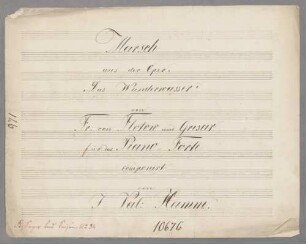 Marsch
aus der Oper
Das Wunderwasser
von
Fr. von Flotow und Grisar
für das Piano-Forte
componirt
von
J. Val: Hamm.
10676